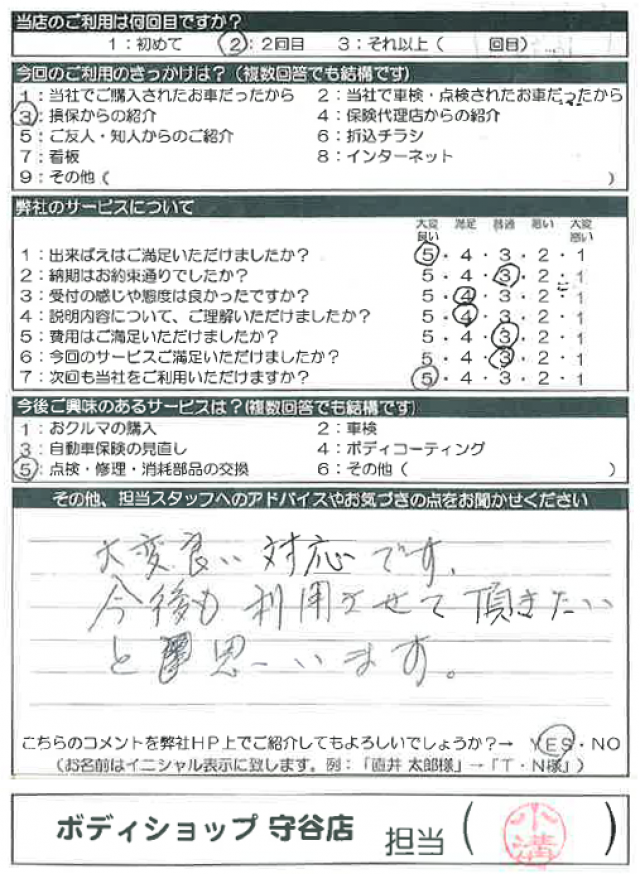 当店のご利用は何回目ですか？
1：初めて 2：2回目 3：それ以上（ 回目）
今回のご利用のきっかけは？（複数回答でも結構です）
1：当社でご購入されたお車だったから 2：当社で車検・点検されたお車だったから
3：損保からの紹介 4：保険代理店からの紹介
5：ご友人・知人からのご紹介 6：折込チラシ
7：看板 8：インターネット
9：その他（ ）
弊社のサービスについて
大変良い 満足 普通 悪い 大変悪い
1：出来ばえはご満足いただけましたか？ 5・4・3・2・1
2：納期はお約束通りでしたか？ 5・4・3・2・1
3：受付の感じや態度は良かったですか？ 5・4・3・2・1
4：説明内容について、ご理解いただけましたか？ 5・4・3・2・1
5：費用はご満足いただけましたか？ 5・4・3・2・1
6：今回のサービスご満足いただけましたか？ 5・4・3・2・1
7：次回も当社をご利用いただけますか？ 5・4・3・2・1
今後ご興味のあるサービスは？(複数回答でも結構です）
1：おクルマの購入 2：車検
3：自動車保険の見直し 4：ボディコーティング
5：点検・修理・消耗部品の交換 6：その他（ ）
その他、担当スタッフへのアドバイスやお気づきの点をお聞かせください
大変良い対応です。
今後も利用させて頂きたい
と思います。
こちらのコメントを弊社HP上でご紹介してもよろしいでしょうか？→ YES・NO
（お名前はイニシャル表示に致します。例：「直井 太郎様」→「T・N様」）
ボディショップ 守谷店 担当（小溝）